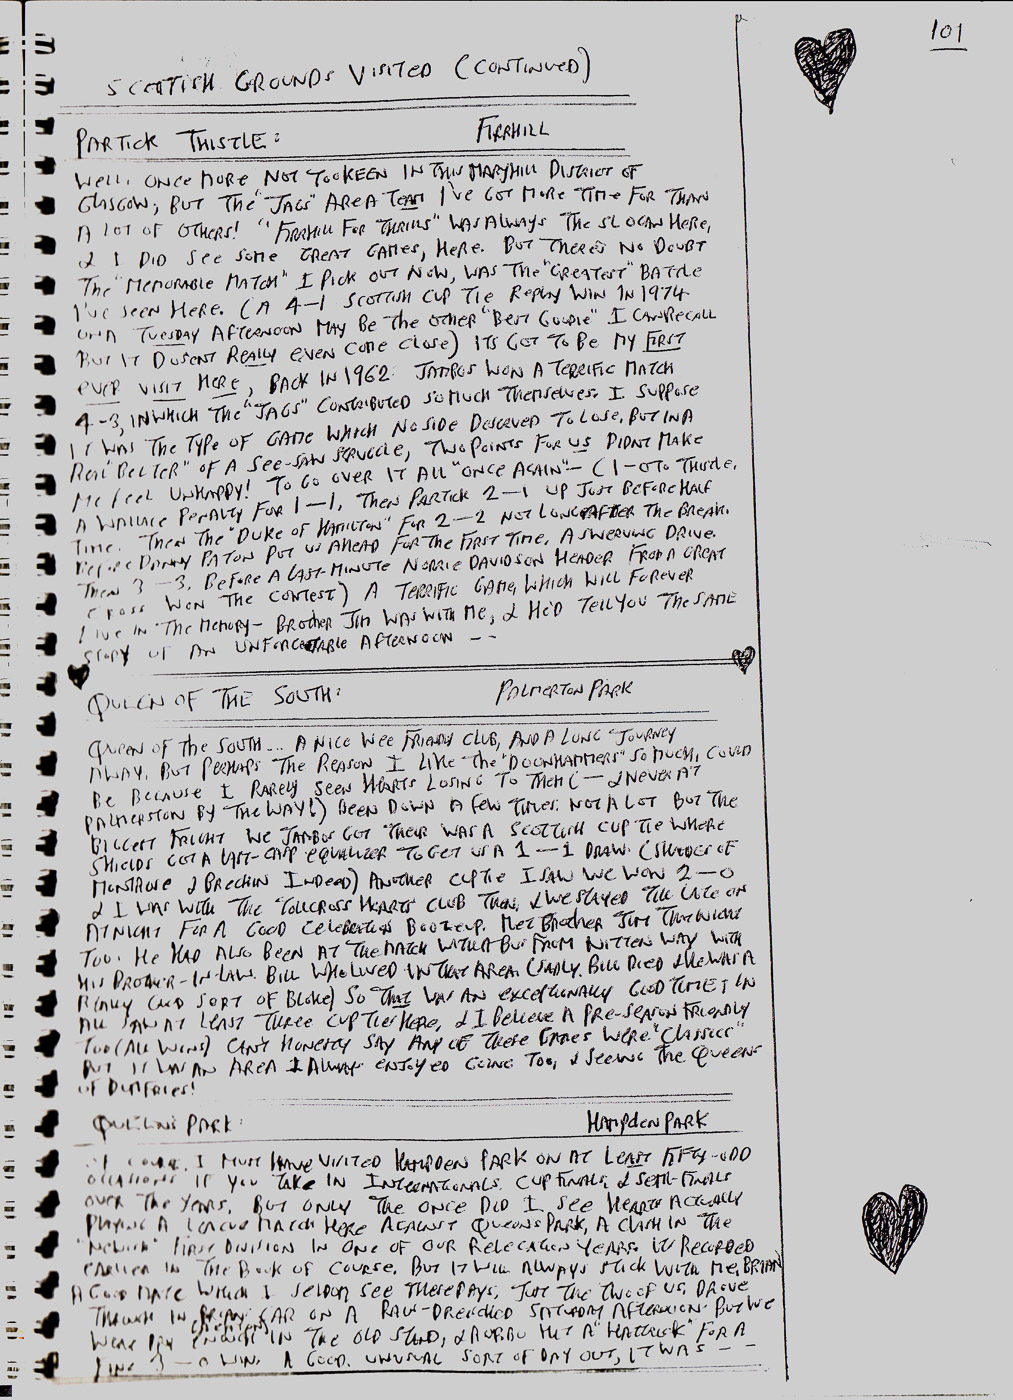 101
SCOTTISH GROUNDS VISITED (CONTINUED)
PARTICK THISTLE: FIRRHILL
WELL, ONCE MORE NOT TOO KEEN IN THIS MARYHILL DISTRICT OF
GLASGOW, BUT THE "JAGS" AREA TEAM I'VE GOT MORE TIME FOR THAN
A LOT OF OTHERS! "FIRRHILL FOR THRILLS" WAS ALWAYS THE SLOGAN HERE,
& I DID SEE SOME GREAT GAMES, HERE. BUT THERE'S NO DOUBT
THE "MEMORABLE MATCH" I PICK OUT NOW, WAS THE "GREATEST" BATTLE
I'VE SEEN HERE. (A 4-1 SCOTTISH CUP TIE REPLAY WIN IN 1974
ON A TUESDAY AFTERNOON MAY BE THE OTHER "BEST GOODIE" I CAN RECALL
BUT IT DUSENT REALLY EVEN COME CLOSE) ITS GOT TO BE MY FIRST
EVER VISIT HERE, BACK IN 1962. JAMBOS WON A TERRIFIC MATCH
4-3, IN WHICH THE "JAGS" CONTRIBUTED SO MUCH THEMSELVES. I SUPPOSE
IT WAS THE TYPE OF GAME WHICH NO SIDE DESERVED TO LOSE, BUT IN A
REAL "BELTER" OF A SEE-SAW STRUGGLE, TWO POINTS FOR US DIDNT MAKE
ME FEEL UNHAPPY! TO GO OVER IT ALL "ONCE AGAIN" - (1-0 TO THISTLE,
A WALLACE PENALTY FOR 1-1, THEN PARTICK 2-1 UP JUST BEFORE HALF
TIME. THEN THE "DUKE OF HAMILTON" FOR 2-2 NOT LONG AFTER THE BREAK.
BEFORE DANNY PATON PUT US AHEAD FOR THE FIRST TIME, A SWERVING DRIVE.
THEN 3-3, BEFORE A LAST-MINUTE NORRIE DAVIDSON HEADER FROM A GREAT
CROSS WON THE CONTEST) A TERRIFIC GAME, WHICH WILL FOREVER
LIVE IN THE MEMORY - BROTHER JIM WAS WITH ME, & HE'D TELL YOU THE SAME
STORY OF AN UNFORGETTABLE AFTERNOON --
QUEEN OF THE SOUTH: PALMERTON PARK
QUEEN OF THE SOUTH... A NICE WEE FRIENDLY CLUB, AND A LONG JOURNEY
AWAY. BUT PERHAPS THE REASON I LIKE THE "DOONHAMMERS" SO MUCH, COULD
BE BECAUSE I RARELY SEEN HEARTS LOSING TO THEM (- & NEVER AT
PALMERSTON BY THE WAY!) BEEN DOWN A FEW TIMES. NOT A LOT BUT THE
BIGGEST FRIGHT WE JAMBOS GOT THEIR WAS A SCOTTISH CUP TIE WHERE
SHIELDS GOT A LAST-GASP EQUALIZER TO GET US A 1-1 DRAW. (SHADES OF
MONTROSE & BRECHIN INDEED) ANOTHER CUP TIE I SAW WE WON 2-0
& I WAS WITH THE "TOLLCROSS HEARTS" CLUB THEN, & WE STAYED TILL LATE ON
AT NIGHT FOR A GOOD CELEBRATION BOOZE UP. MET BROTHER JIM THAT NIGHT
TOO. HE HAD ALSO BEEN AT THE MATCH WITH A BUS FROM NITTEN WAY WITH
HIS BROTHER-IN-LAW. BILL WHO LIVED IN THAT AREA (SADLY. BILL DIED & HE WAS A
REALLY GOOD SORT OF BLOKE) SO THAT WAS AN EXCEPTIONALLY GOOD TIME; IN
ALL SAW AT LEAST THREE CUP TIES HERE, & I BELIEVE A PRE-SEASON FRIENDLY
TOO (ALL WINS) CAN'T HONESTLY SAY ANY OF THESE GAMES WERE "CLASSICS"
BUT IT WAS AN AREA I ALWAYS ENJOYED GOING TOO, & SEEING THE QUEENS
OF DUMFRIES!
QUEENS PARK: HAMPDEN PARK
OF COURSE, I MUST HAVE VISITED HAMPDEN PARK ON AT LEAST FIFTY-ODD
OCCASIONS IF YOU TAKE IN INTERNATIONALS, CUP FINALS, & SEMI-FINALS
OVER THE YEARS, BUT ONLY THE ONCE DID I SEE HEARTS ACTUALLY
PLAYING A LEAGUE MATCH HERE AGAINST QUEENS PARK, A CLASH IN THE
FIRST DIVISION IN ONE OF OUR RELEGATION YEARS. ITS RECORDED
EARLIER IN THE BOOK OF COURSE, BUT IT WILL ALWAYS STICK WITH ME, BRIAN
A GOOD MATE WHICH I SELDOM SEE THESE DAYS, JUST THE TWO OF US, DROVE
THROUGH IN CAR ON A RAIN-DRENCHED SATURDAY AFTERNOON. BUT WE
WERE DRY ENOUGH IN THE OLD STAND, & ROBBO HIT A "HATTRICK" FOR A
FINE 3-0 WIN. A GOOD, UNUSUAL SORT OF DAY OUT, IT WAS --